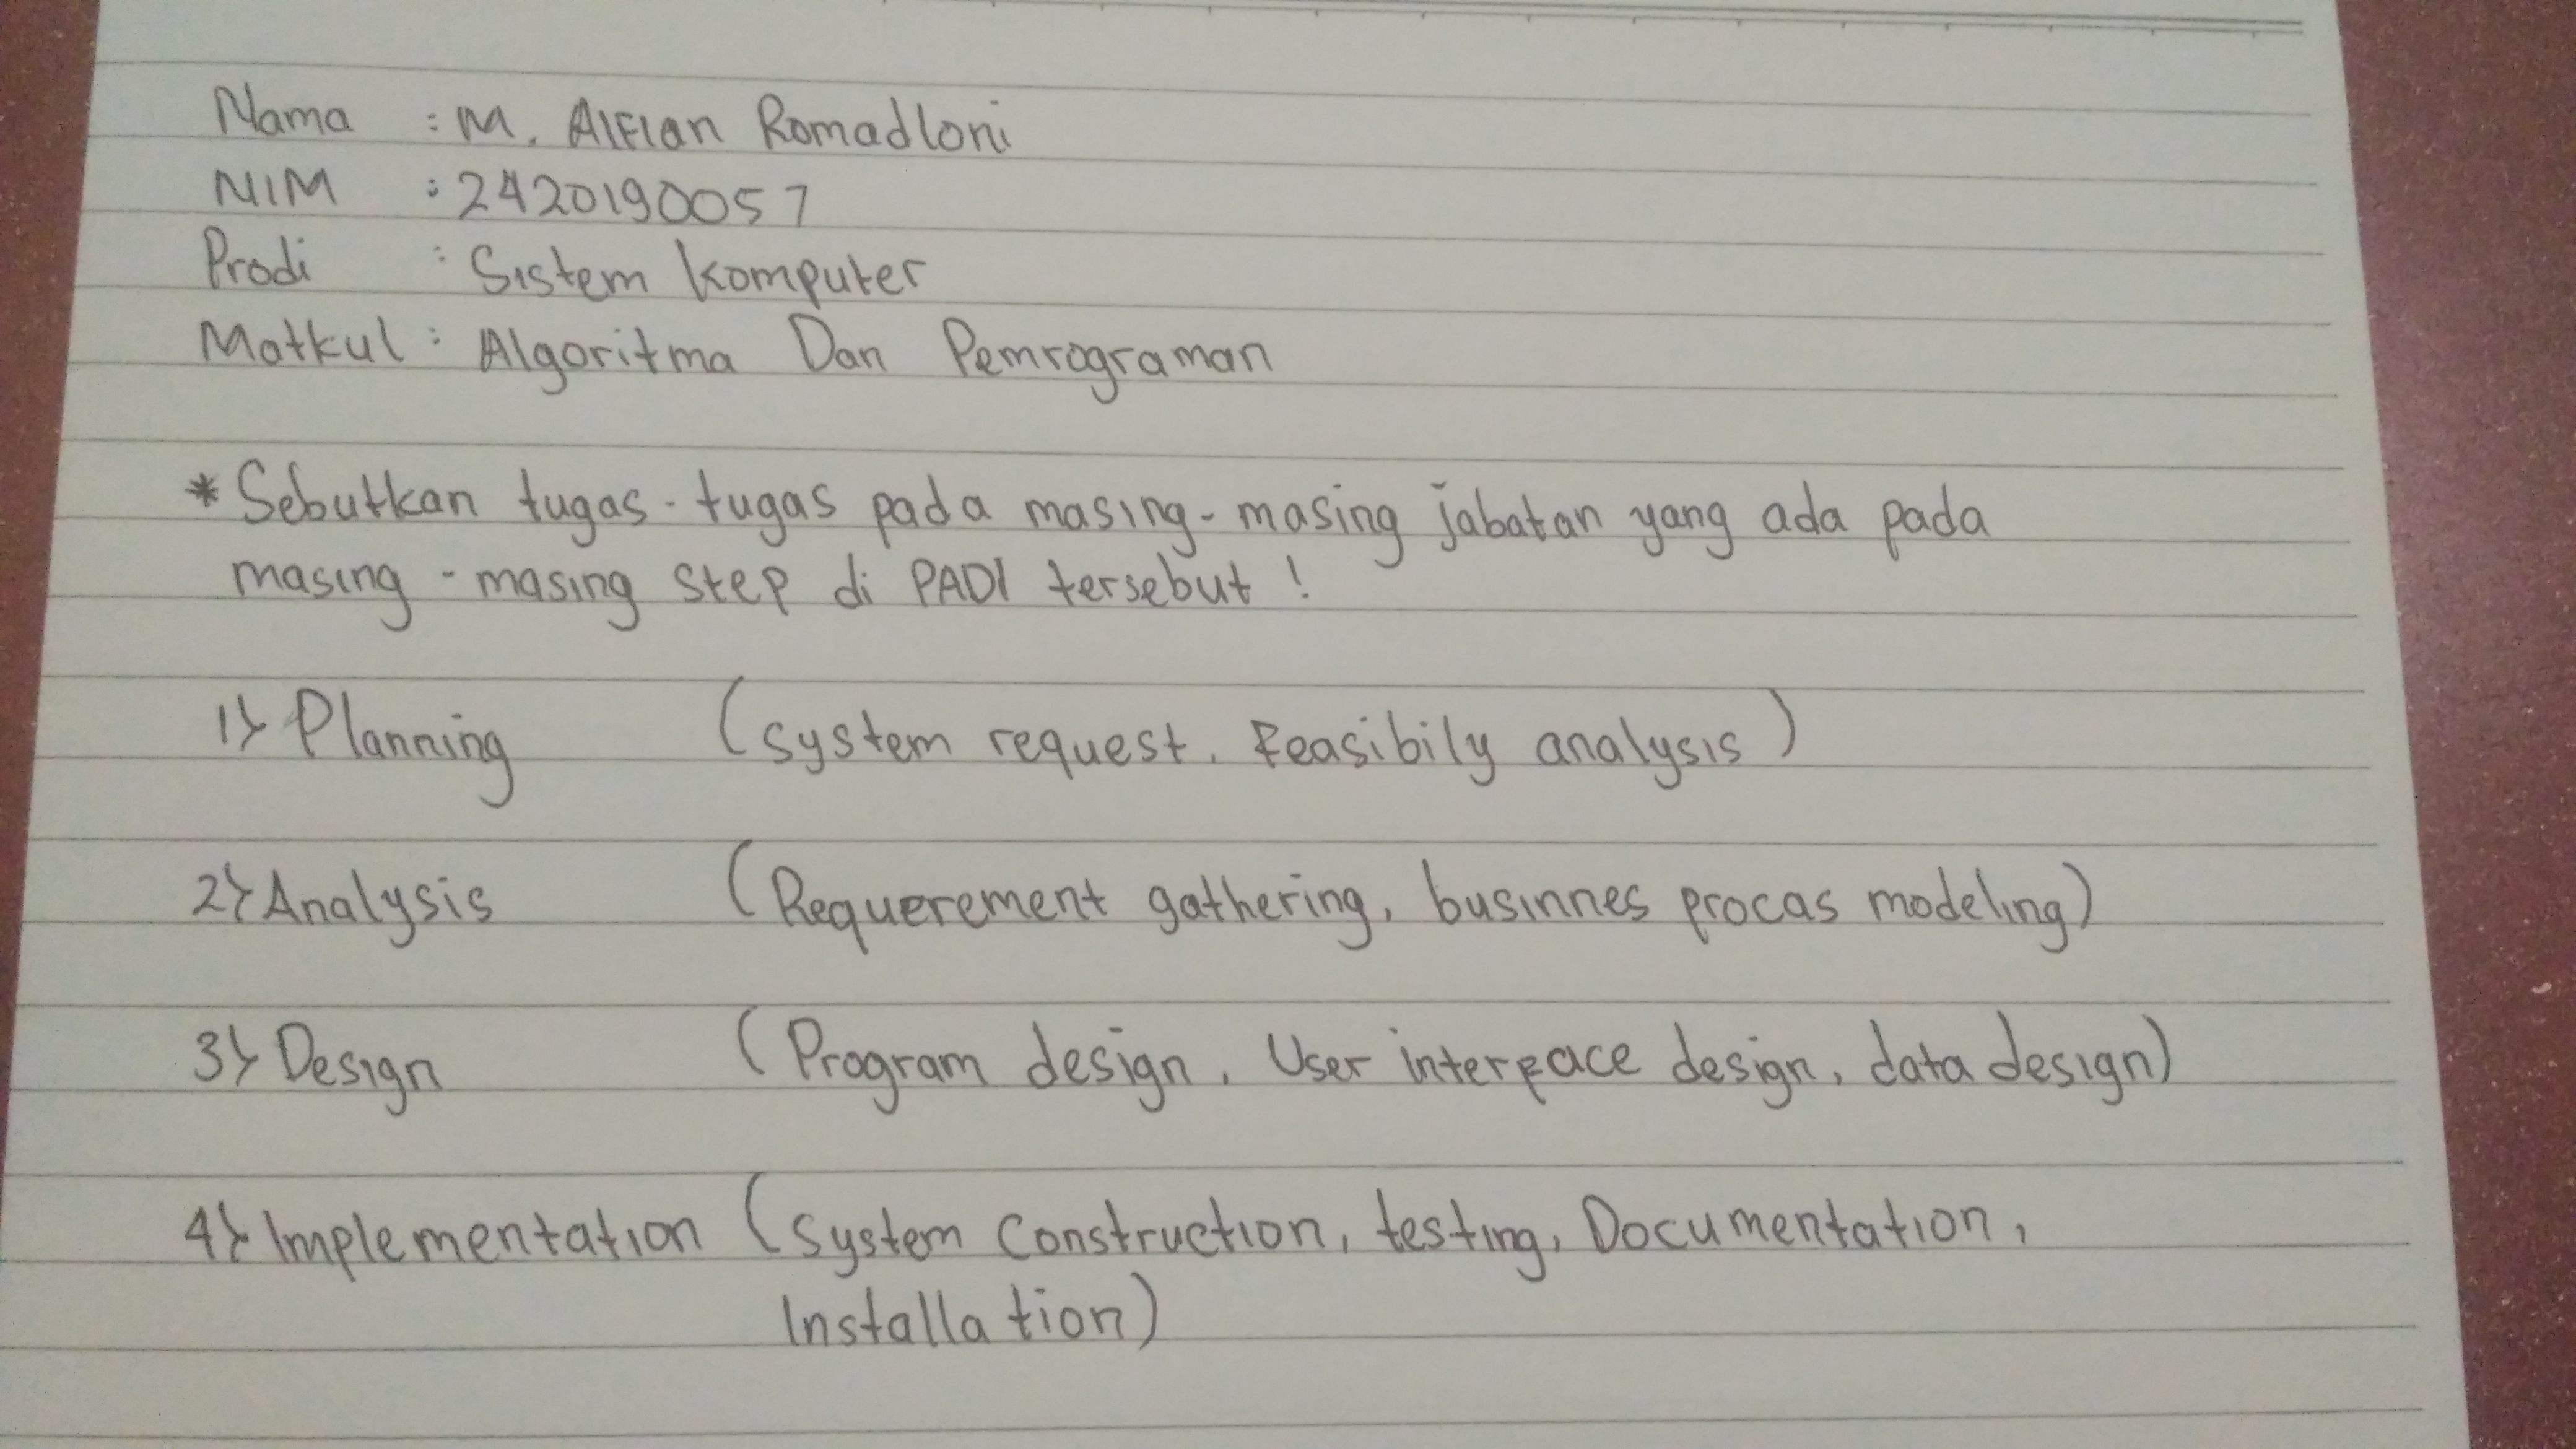 Nama : M. Alfian Romadloni
NIM : 2420190057
Prodi : Sistem Komputer
Matkul : Algoritma Dan Pemrograman
* Sebutkan tugas-tugas pada masing-masing jabatan yang ada pada
masing-masing step di PADI tersebut !
1} Planning (System request, Feasibily analysis)
2} Analysis (Requerement gathering, businnes procas modeling)
3} Design (Program design, User interface design, data design)
4} Implementation (System Construction, testing, Documentation,
Installation)